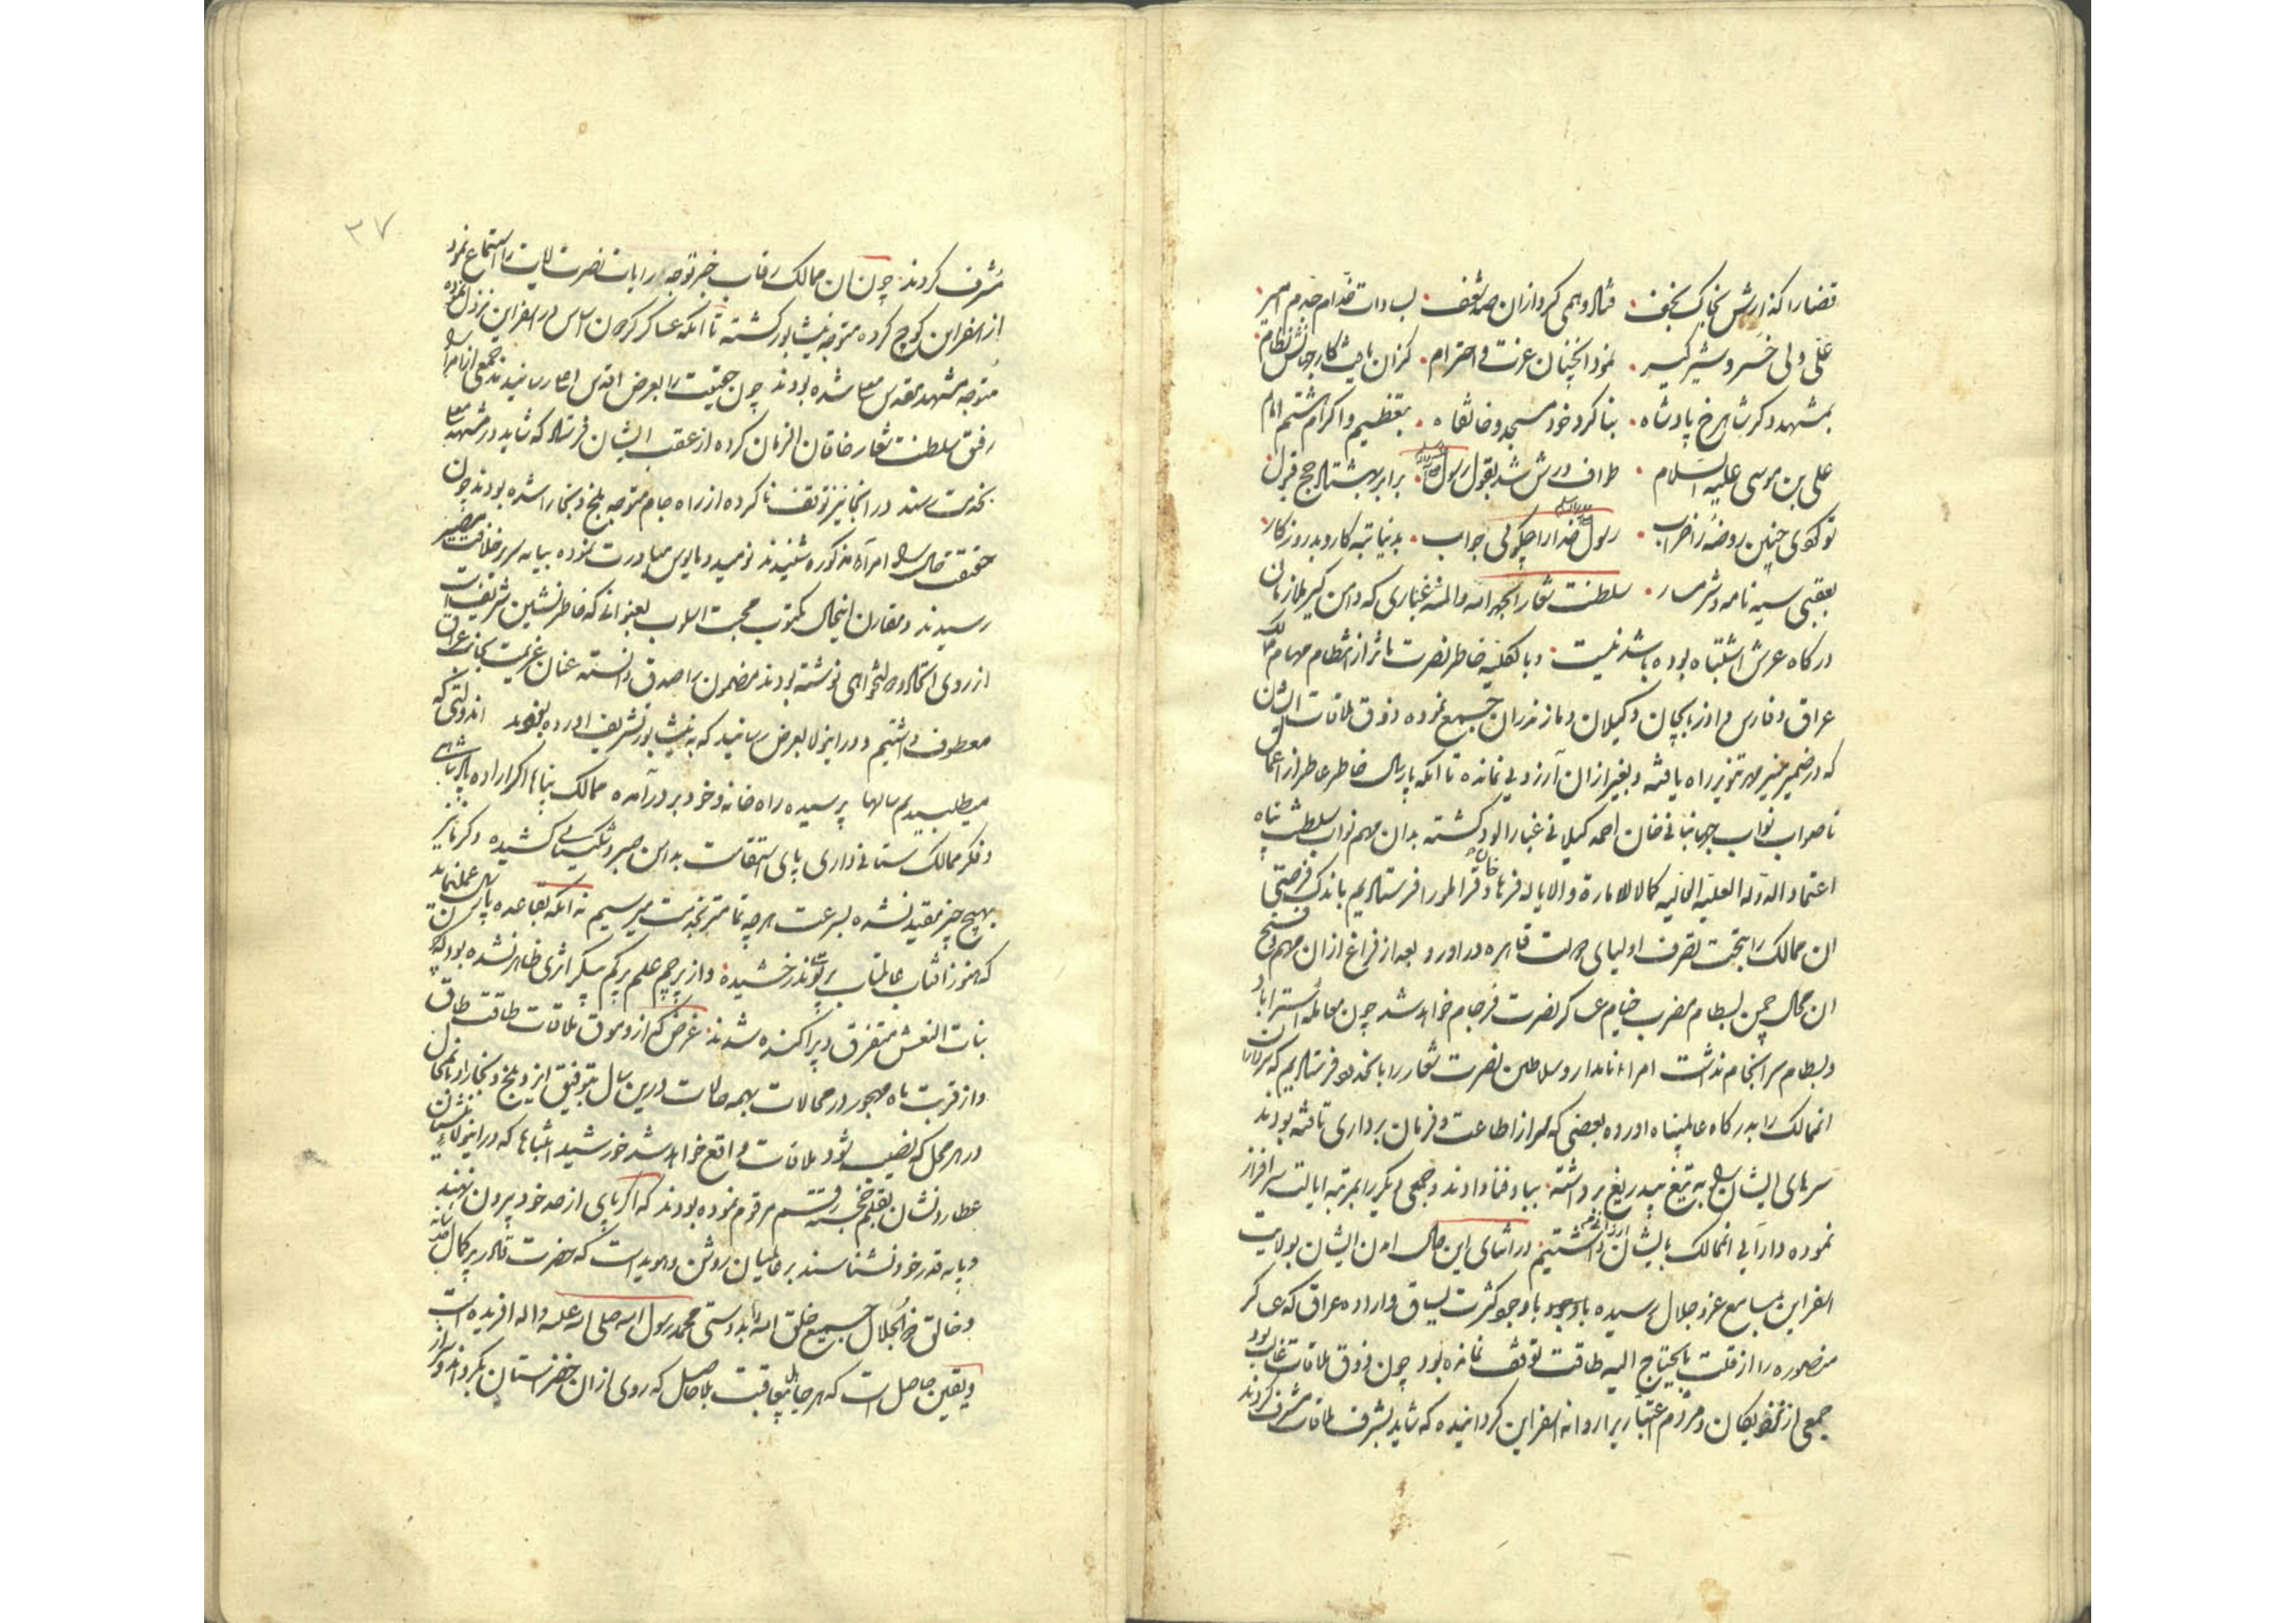 قضا را گذارش بخاک نجف فتاد و همی کرد ازان صد شعف بسادات خدام
علی ولی خسرو شیرگیر نمود آنچنان عزت و احترام کزان یافت کار جهانش نظام
بمشهد دگر شاهرخ پادشاه بنا کرد خود مسجد و خانقاه بتعظیم و اکرام هشتم امام
علی بن موسی علیه السلام طواف درش شد بقول رسول برابر بهشتاد حج قبول
تو کوی چنین روضه را خراب رسول خدا را چکویی جواب بدنیا تبه کار و بد روزکار
بعقبی سیه نامه و شرمسار سلطنت شعارا الحمد الله والمنه غباری که دامن کیر ملازمان
درکاه عرش اشتباه بوده باشد نیست و بالکلیه خاطر نصرت ماثر از انتظام مهام ممالک
عراق و فارس و اذربایجان و کیلان و مازندران جمیع نموده ذوق ملاقات ایشان
که در ضمیر منیر مهر تنویر راه یافته و بغیر از ان آرزویی نمانده تا انکه پارسال خاطر عاطر از اعمال
ناصواب نواب جهانبانی خان احمد کیلانی غبار الود کشته بدان مهم نواب سلطنت پناه
اعتماد الدوله العلیه العالیه کمالا للامارة والایاله فرهاد خان قرامانلو را فرستادیم باندک فرصتی
ان ممالک را بتحت تصرف اولیای دولت قاهره در اورد و بعد از فراغ ازان مهم و فتح
ان محال چمن بسطام مضرب خیام عساکر نصرت فرجام خواهد شد چون معامله استراباد
و بسطام سرانجام نداشت امراء نامدار و سلاطین نصرت شعار را بانحدود فرستادیم که سرداران
انممالک را بدرکاه عالمپناه اورده بعضی که سر از اطاعت و فرمان برداری تافته بودند
سرهای ایشان را به تیغ بیدریغ برداشته بباد فنا دادند و جمعی دیکر را بمرتبه ایالت سرافراز
نموده دارایی انممالک بایشان ارزانی داشتیم در اثنای این حال امدن ایشان بولایت
اسفراین بمسامع عز و جلال رسیده باوجود کثرت یساق و اردو عراق که عساکر
منصوره را از قلت مایحتاج الیه طاقت توقف نمانده بود چون ذوق ملاقات غالب بود
جمعی از نزدیکان و مردم اعتباریرا روانه اسفراین کردانیده که شاید بشرف ملاقات مشرف کردند
۳۷
مشرف کردند چون ان ممالک رقاب خبر توجه رایات نصرت ایات را استماع نمود
از اسفراین کوچ کرده متوجه نیشابور کشته تا انکه عساکر کردون اساس در اسفراین نزول نموده
متوجه مشهد مقدس معلی شده بودند چون حقیقت را بعرض اقدس اعلی رسانیدند جمعی از امرا را
رفیق سلطنت شعار خاقان الزمان کرده از عقب ایشان فرستاد که شاید در مشهد معلی
بخدمت رسند در انجا نیز توقف ناکرده از راه جام متوجه بلخ و بخارا شده بودند چون
حقیقت حال را امراء مذکوره شنیدند نومید و مایوس مبادرت نموده بپایه سریر خلافت مصیر
رسیدند و مقارن اینحال مکتوب محبت اسلوب بعنوانی که خاطر نشین شریف است
از روی اتحاد و دولتخواهی نوشته بودند مضمون را صدق دانسته عنان عزیمت بجانب عراق
معطوف داشتیم و در اینولا بعرض رسانید که به نیشابور تشریف اورده بودند اندولتی که
میطلبیدیم سالها پرسیده راه خانه و خود بر در آمده ممالک پناها اکر اراده پادشاهی
و فکر ممالک ستانی داری پای استقامت بدامن صبر و شکیبایی کشیده و کر ما نیز
بهیچ چیز مقید نشده بسرعت هر چه تمامتر بخدمت میرسیم نه انکه بقاعده پارسال عمل نماید
که هنوز افتاب عالمتاب پرتو ندرخشیده و از پرچم علم پرکم پیکر اثری ظاهر نشده بود که چون
بنات النعش متفرق و پراکنده شدند غرض که از ذوق ملاقات طاقت طاق
و از قربت ماه مهجور در محالات بهمه حالات درین سال بتوفیق ایزد بلخ و بخارا و انمحال
در هر محل که نصیب شود ملاقات واقع خواهد شد خورشید اشتباها که در اینولا منشیان
عطارد نشان بقلم خجسته رقم مرقوم نموده بودند که اکر پای از حد خود بیرون نهند
و پایه قدر خود نشناسند بر عالمیان روشن و هویداست که حضرت قادر پر کمال
و خالق ذوالجلال جمیع خلق الله را بدوستی محمد رسول الله صلی الله علیه واله افریده است
و یقین حاصل است که هر جاهل بی عاقبت بلا حاصل که روی ازان خضر استان بکرداند